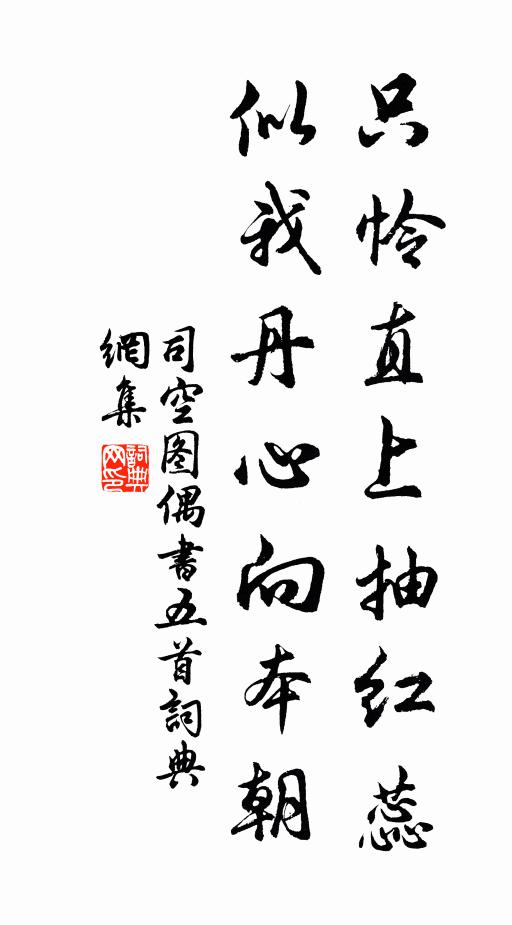 只怜直上抽红蕊
似我丹心向本朝
司空图偶書五首詞典
網集
詞典網印